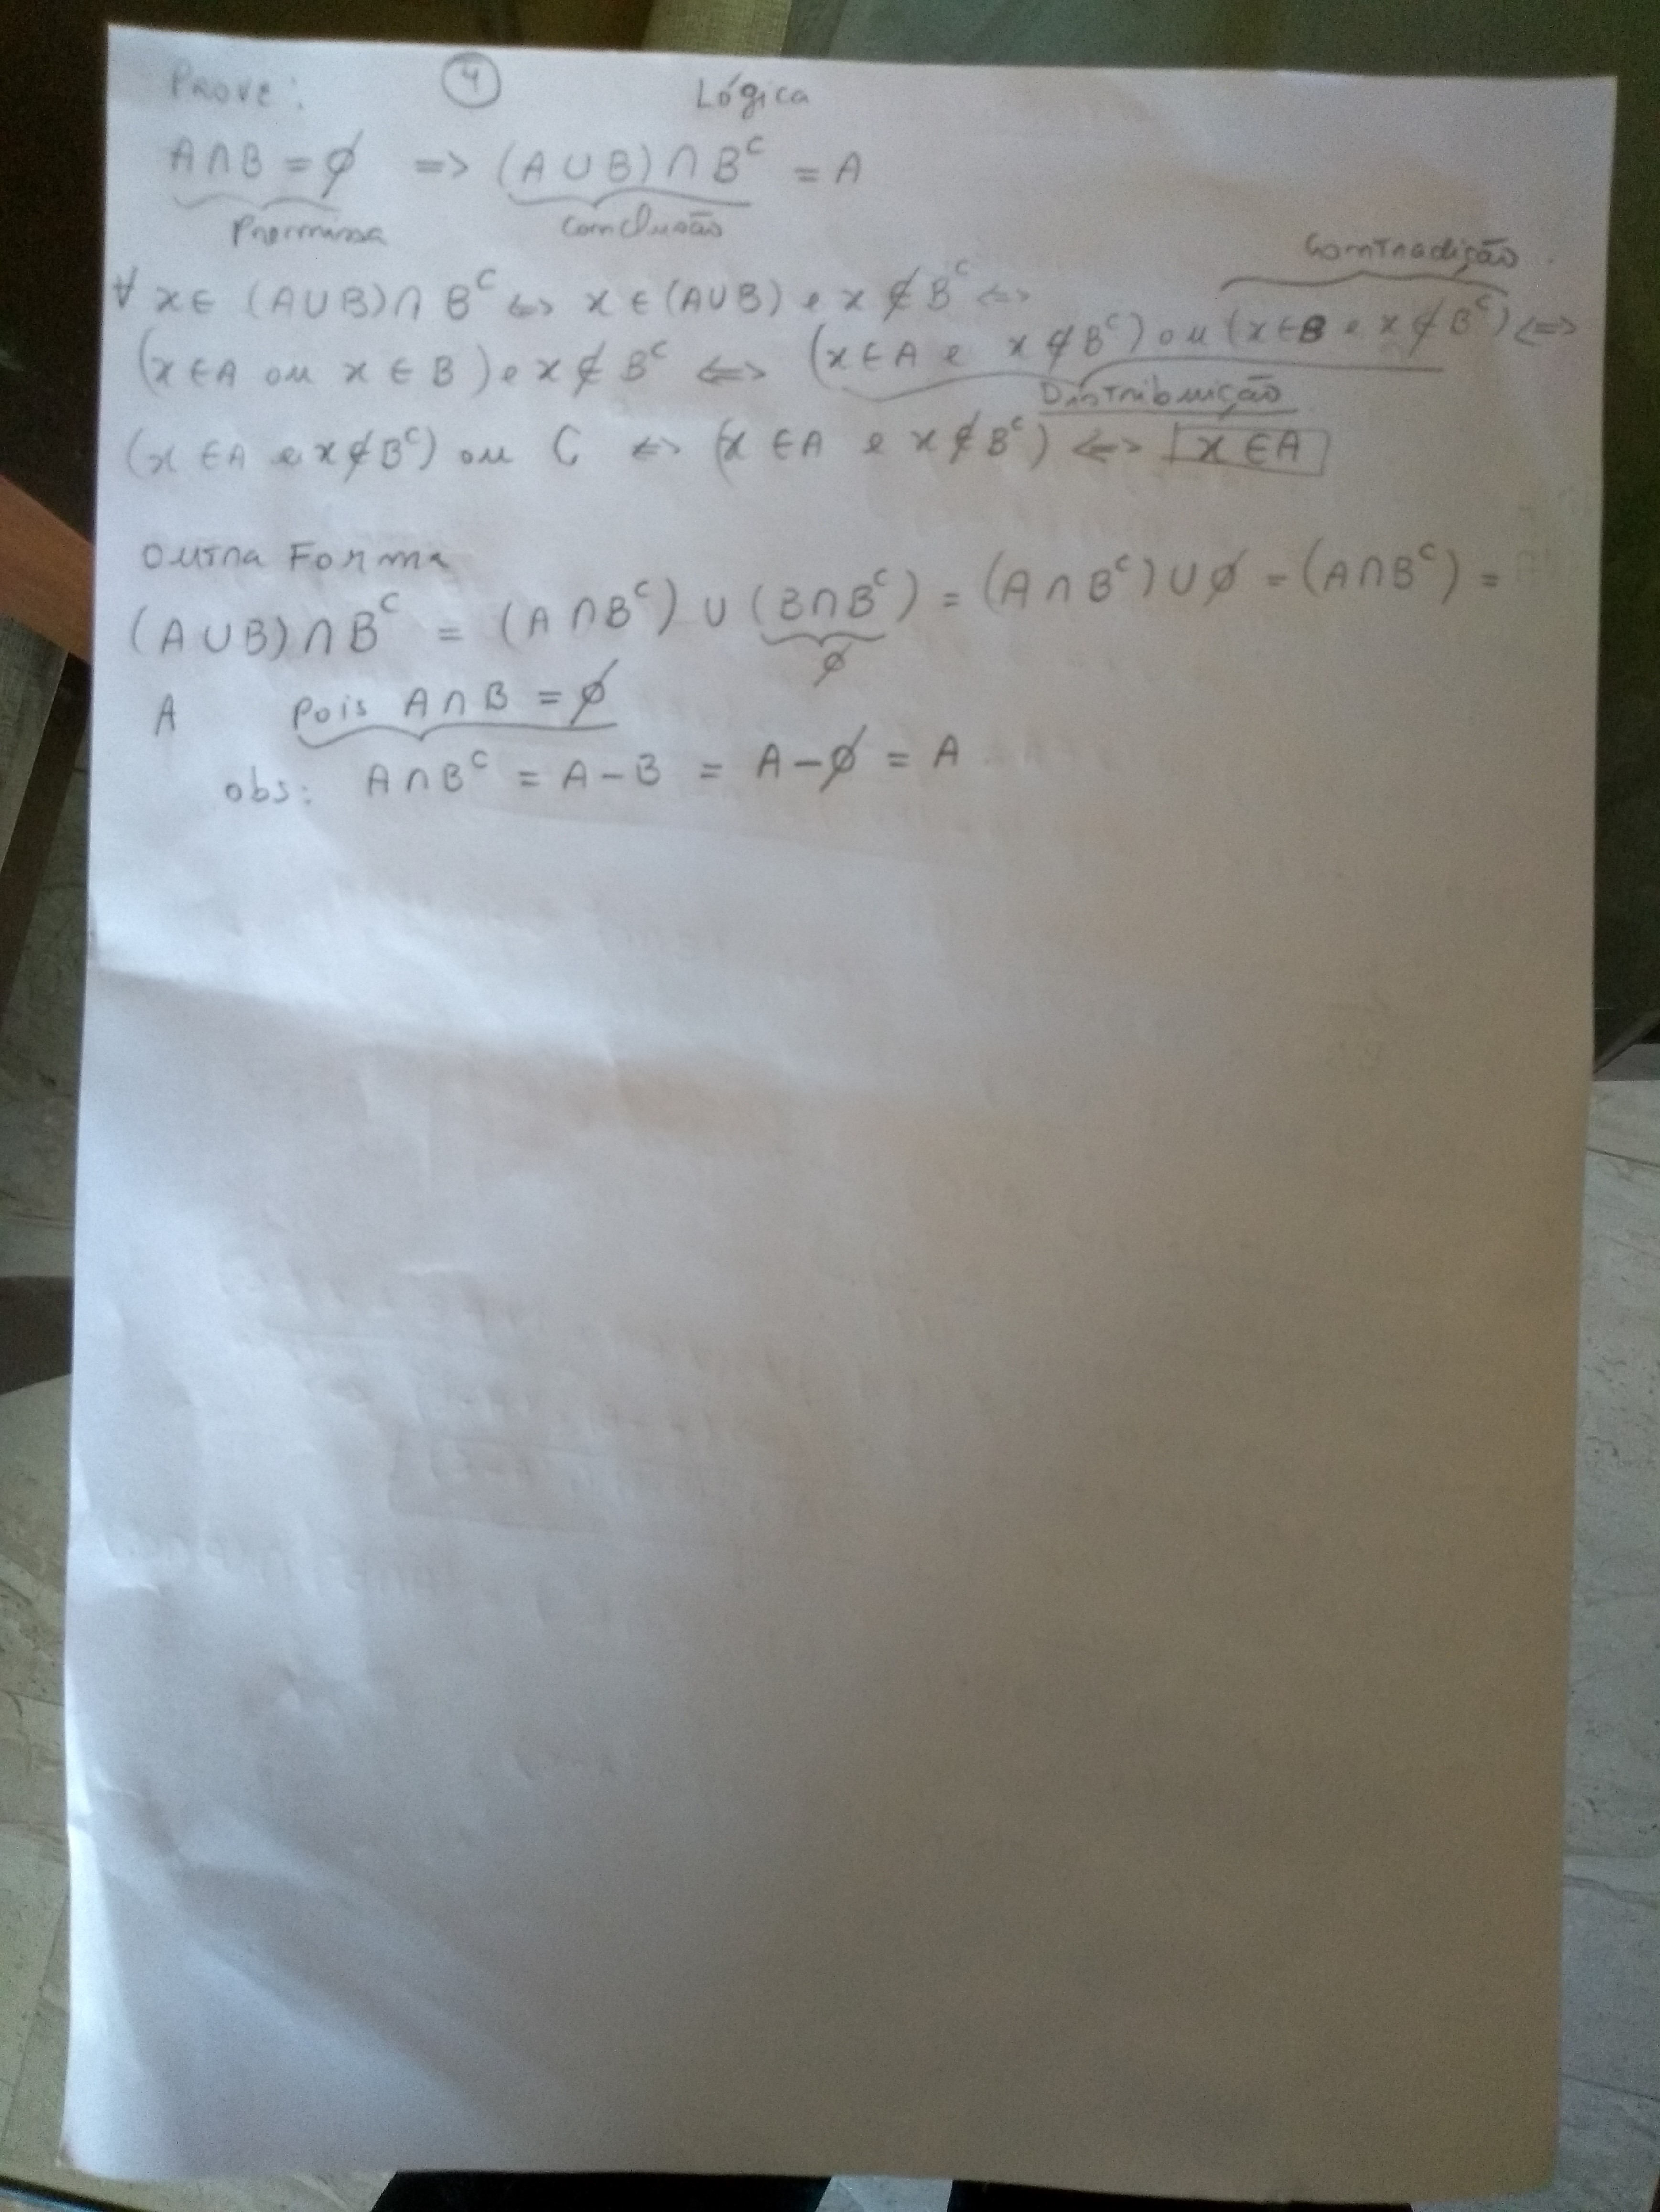 Prove: 4 Lógica
A∩B = ∅ => (A∪B)∩Bᶜ = A
Premissa Conclusão
Contradição
∀ x∈ (A∪B)∩Bᶜ <=> x∈(A∪B) e x∉Bᶜ <=>
(x∈A ou x∈B) e x∉Bᶜ <=> (x∈A e x∉Bᶜ) ou (x∈B e x∉Bᶜ) <=>
Distribuição
(x∈A e x∉Bᶜ) ou C <=> (x∈A e x∉Bᶜ) <=> x∈A
Outra Forma
(A∪B)∩Bᶜ = (A∩Bᶜ) ∪ (B∩Bᶜ) = (A∩Bᶜ)∪∅ = (A∩Bᶜ) =
∅
A Pois A∩B = ∅
obs: A∩Bᶜ = A-B = A-∅ = A